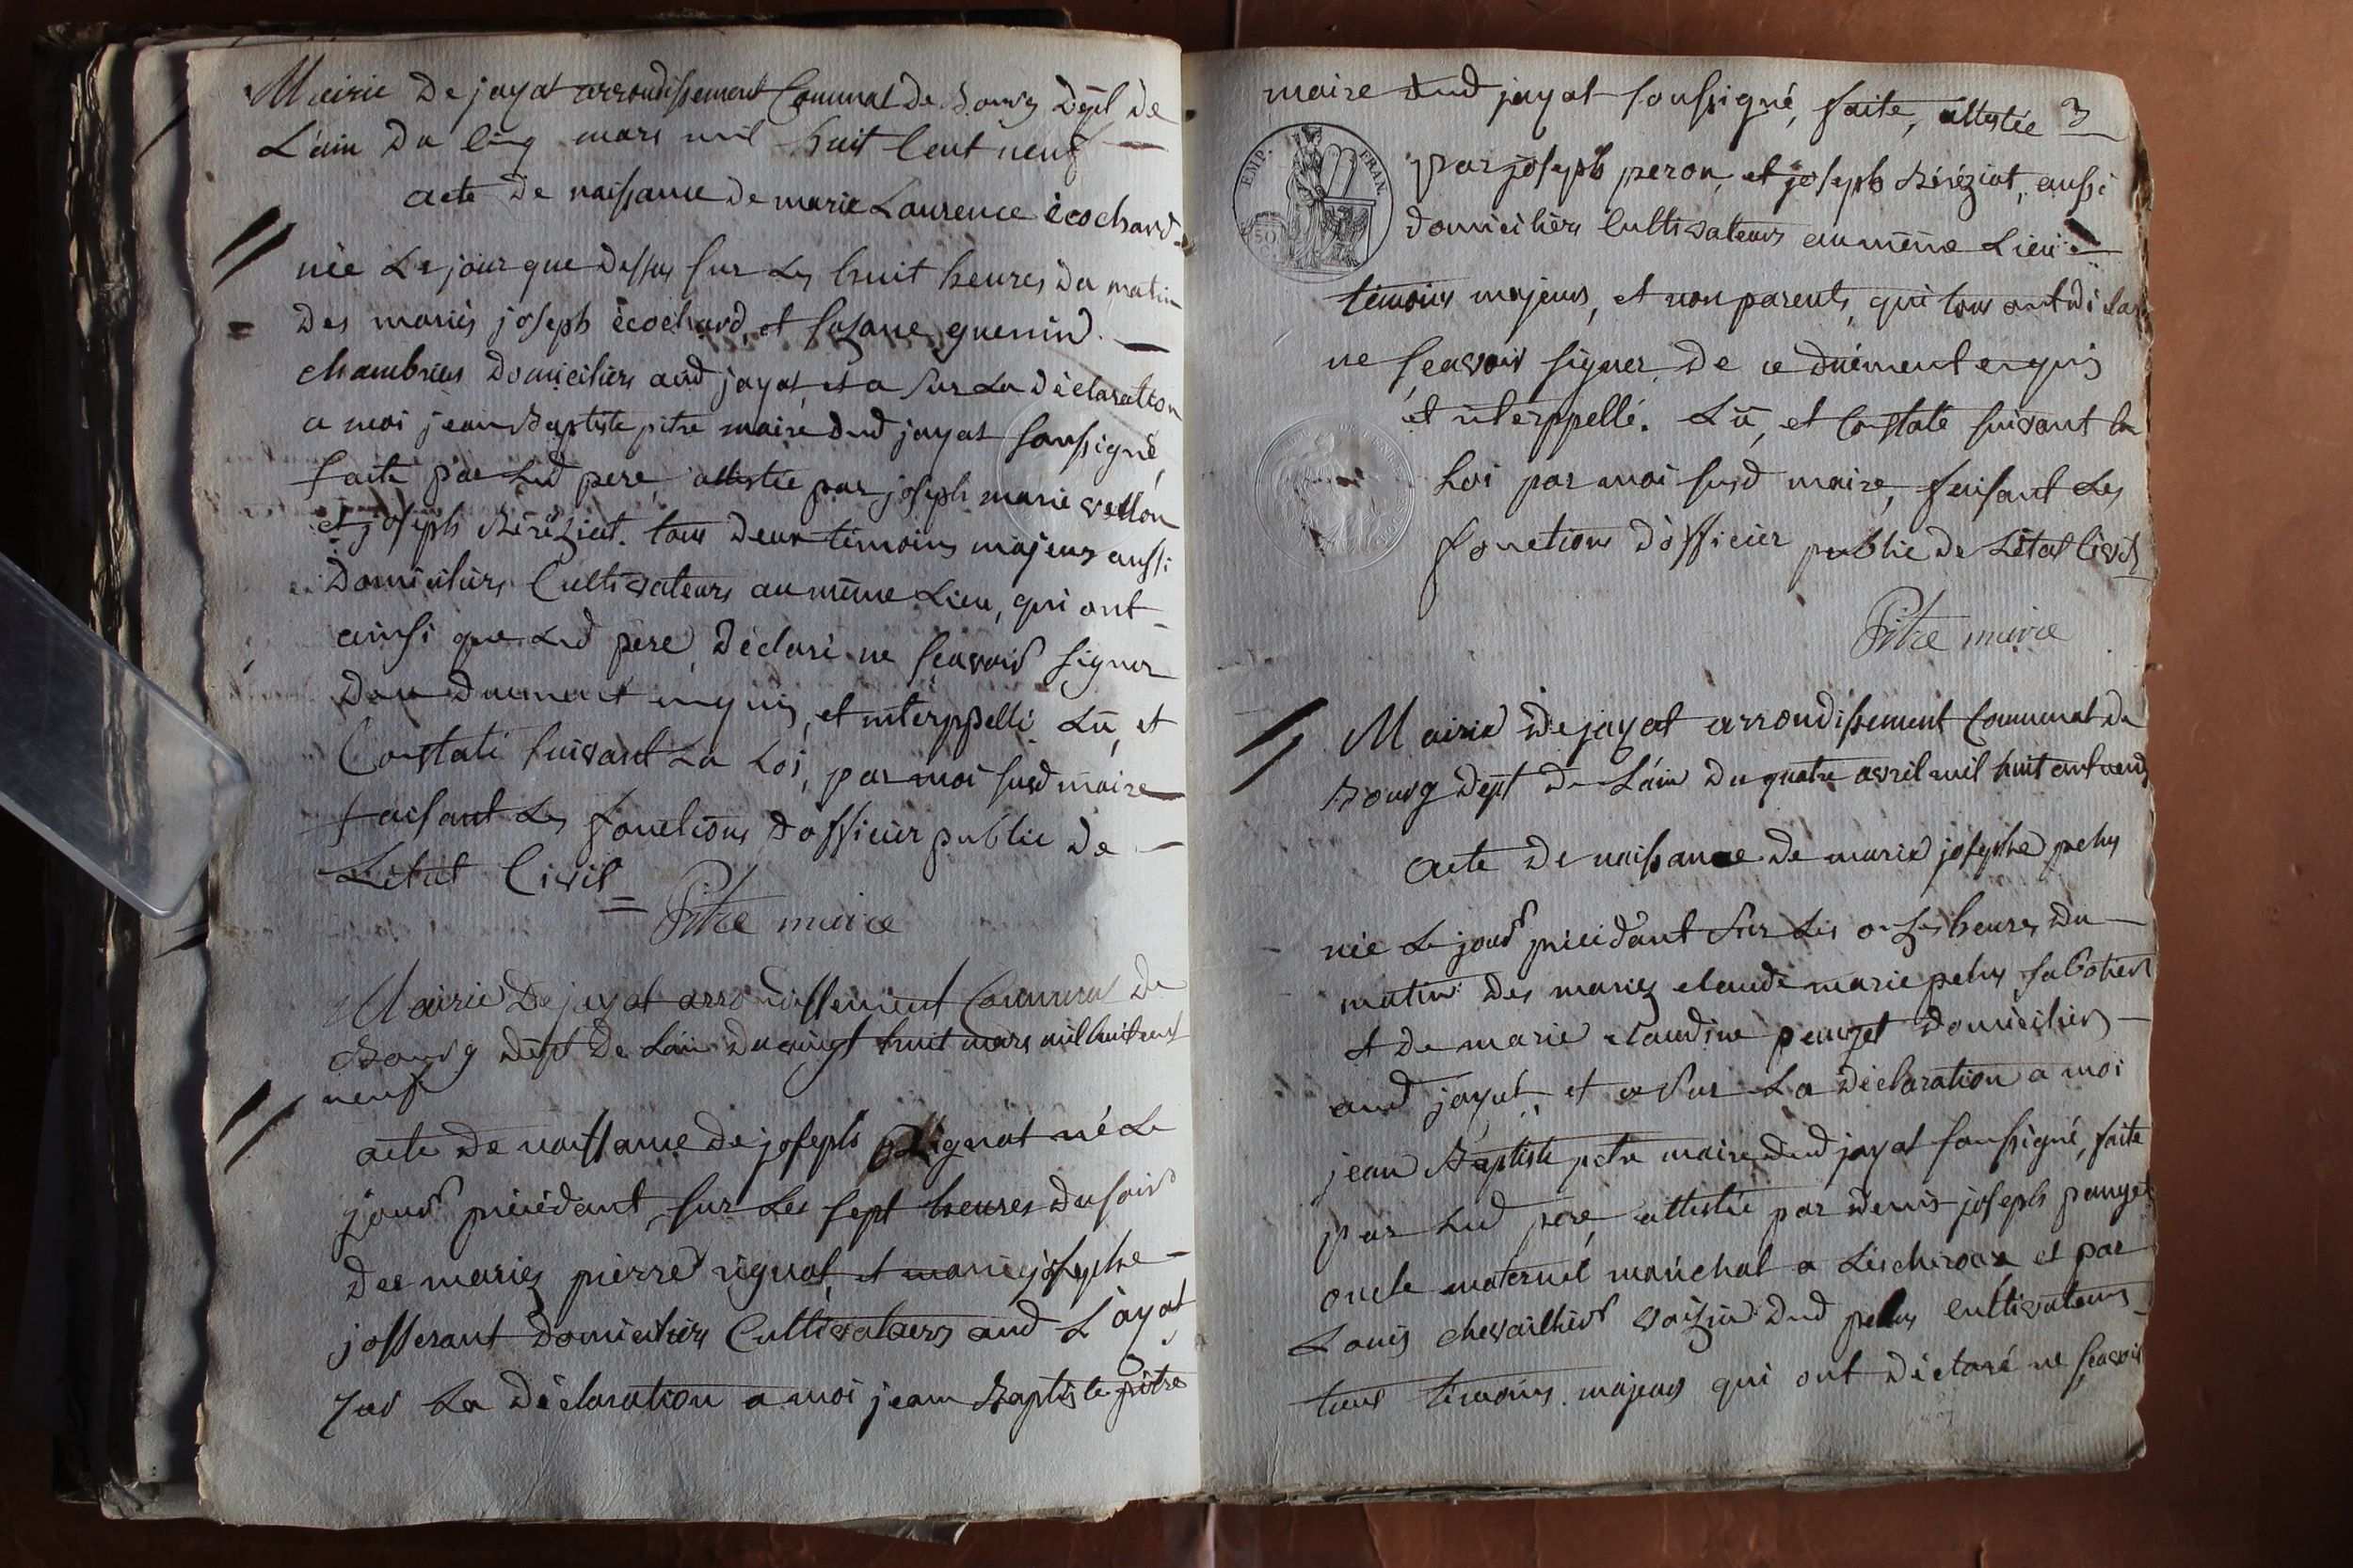 Mairie De jayat arrondissement Communal De Bourg Dépt De
L'ain Du Cinq mars mil huit Cent neuf
acte De naissance De marie Laurence écochard
née Le jour que Dessus sur Les huit heures Du matin
Des mariés joseph écochard, et suzane guenin
chambriers Domiciliés aud jayat, et a sur La Déclaration
a moi jean Baptiste pitre maire dud jayat soussigné,
faite par Lud pere, attestée par joseph marie
et joseph Béréziat. tous Deux témoins majeurs aussi
Domiciliés Cultivateurs au même Lieu, qui ont
ainsi que Lud père Déclaré ne sçavoir signer
Dument enquis, et interppellé. Lû, et
Constaté suivant La Loi, par moi susd maire
faisant Les fonctions D'officier public De
L'état Civil =
Pitre maire
Mairie De jayat arrondissement Communal De
Bourg Dépt De L'ain Du vingt huit mars mil huit cent
neuf
acte De naissance De joseph Rignat né Le
jour précédant, sur Les sept heures Du soir
Des mariez pierre rignat, et marie josephe
josserant Domiciliés Cultivateurs aud Jayat
sur La Déclaration a moi jean Baptiste pitre
3
maire dud jayat soussigné, faite, attestée
EMP. FRAN.
50
par joseph peron, et joseph Béréziat, aussi
Domiciliés Cultivateurs au même Lieu
témoins majeurs, et non parents, qui tous ont
ne sçavoir signer De ce duëment enquis
et interppellé. Lû, et Constaté suivant la
Loi par moi susd maire, faisant Les
fonctions D'officier public De L'état Civil
Pitre maire
Mairie De jayat arrondissement Communal De
Bourg Dépt De L'ain Du quatre avril mil huit cent neuf
acte De naissance De marie josephe
née Le jour précédant sur Les onze heures Du
matin Des mariez claude marie sabotier
et De marie claudine pauget Domiciliés
aud jayat, et a sur La Déclaration a moi
jean Baptiste pitre maire dud jayat soussigné, faite
par Lud père, attestée par Denis joseph pauget
oncle maternel maréchal a Lescheroux et par
Louis chevailhier voizin Dud cultivateurs
tous témoins majeurs qui ont Déclaré ne sçavoir